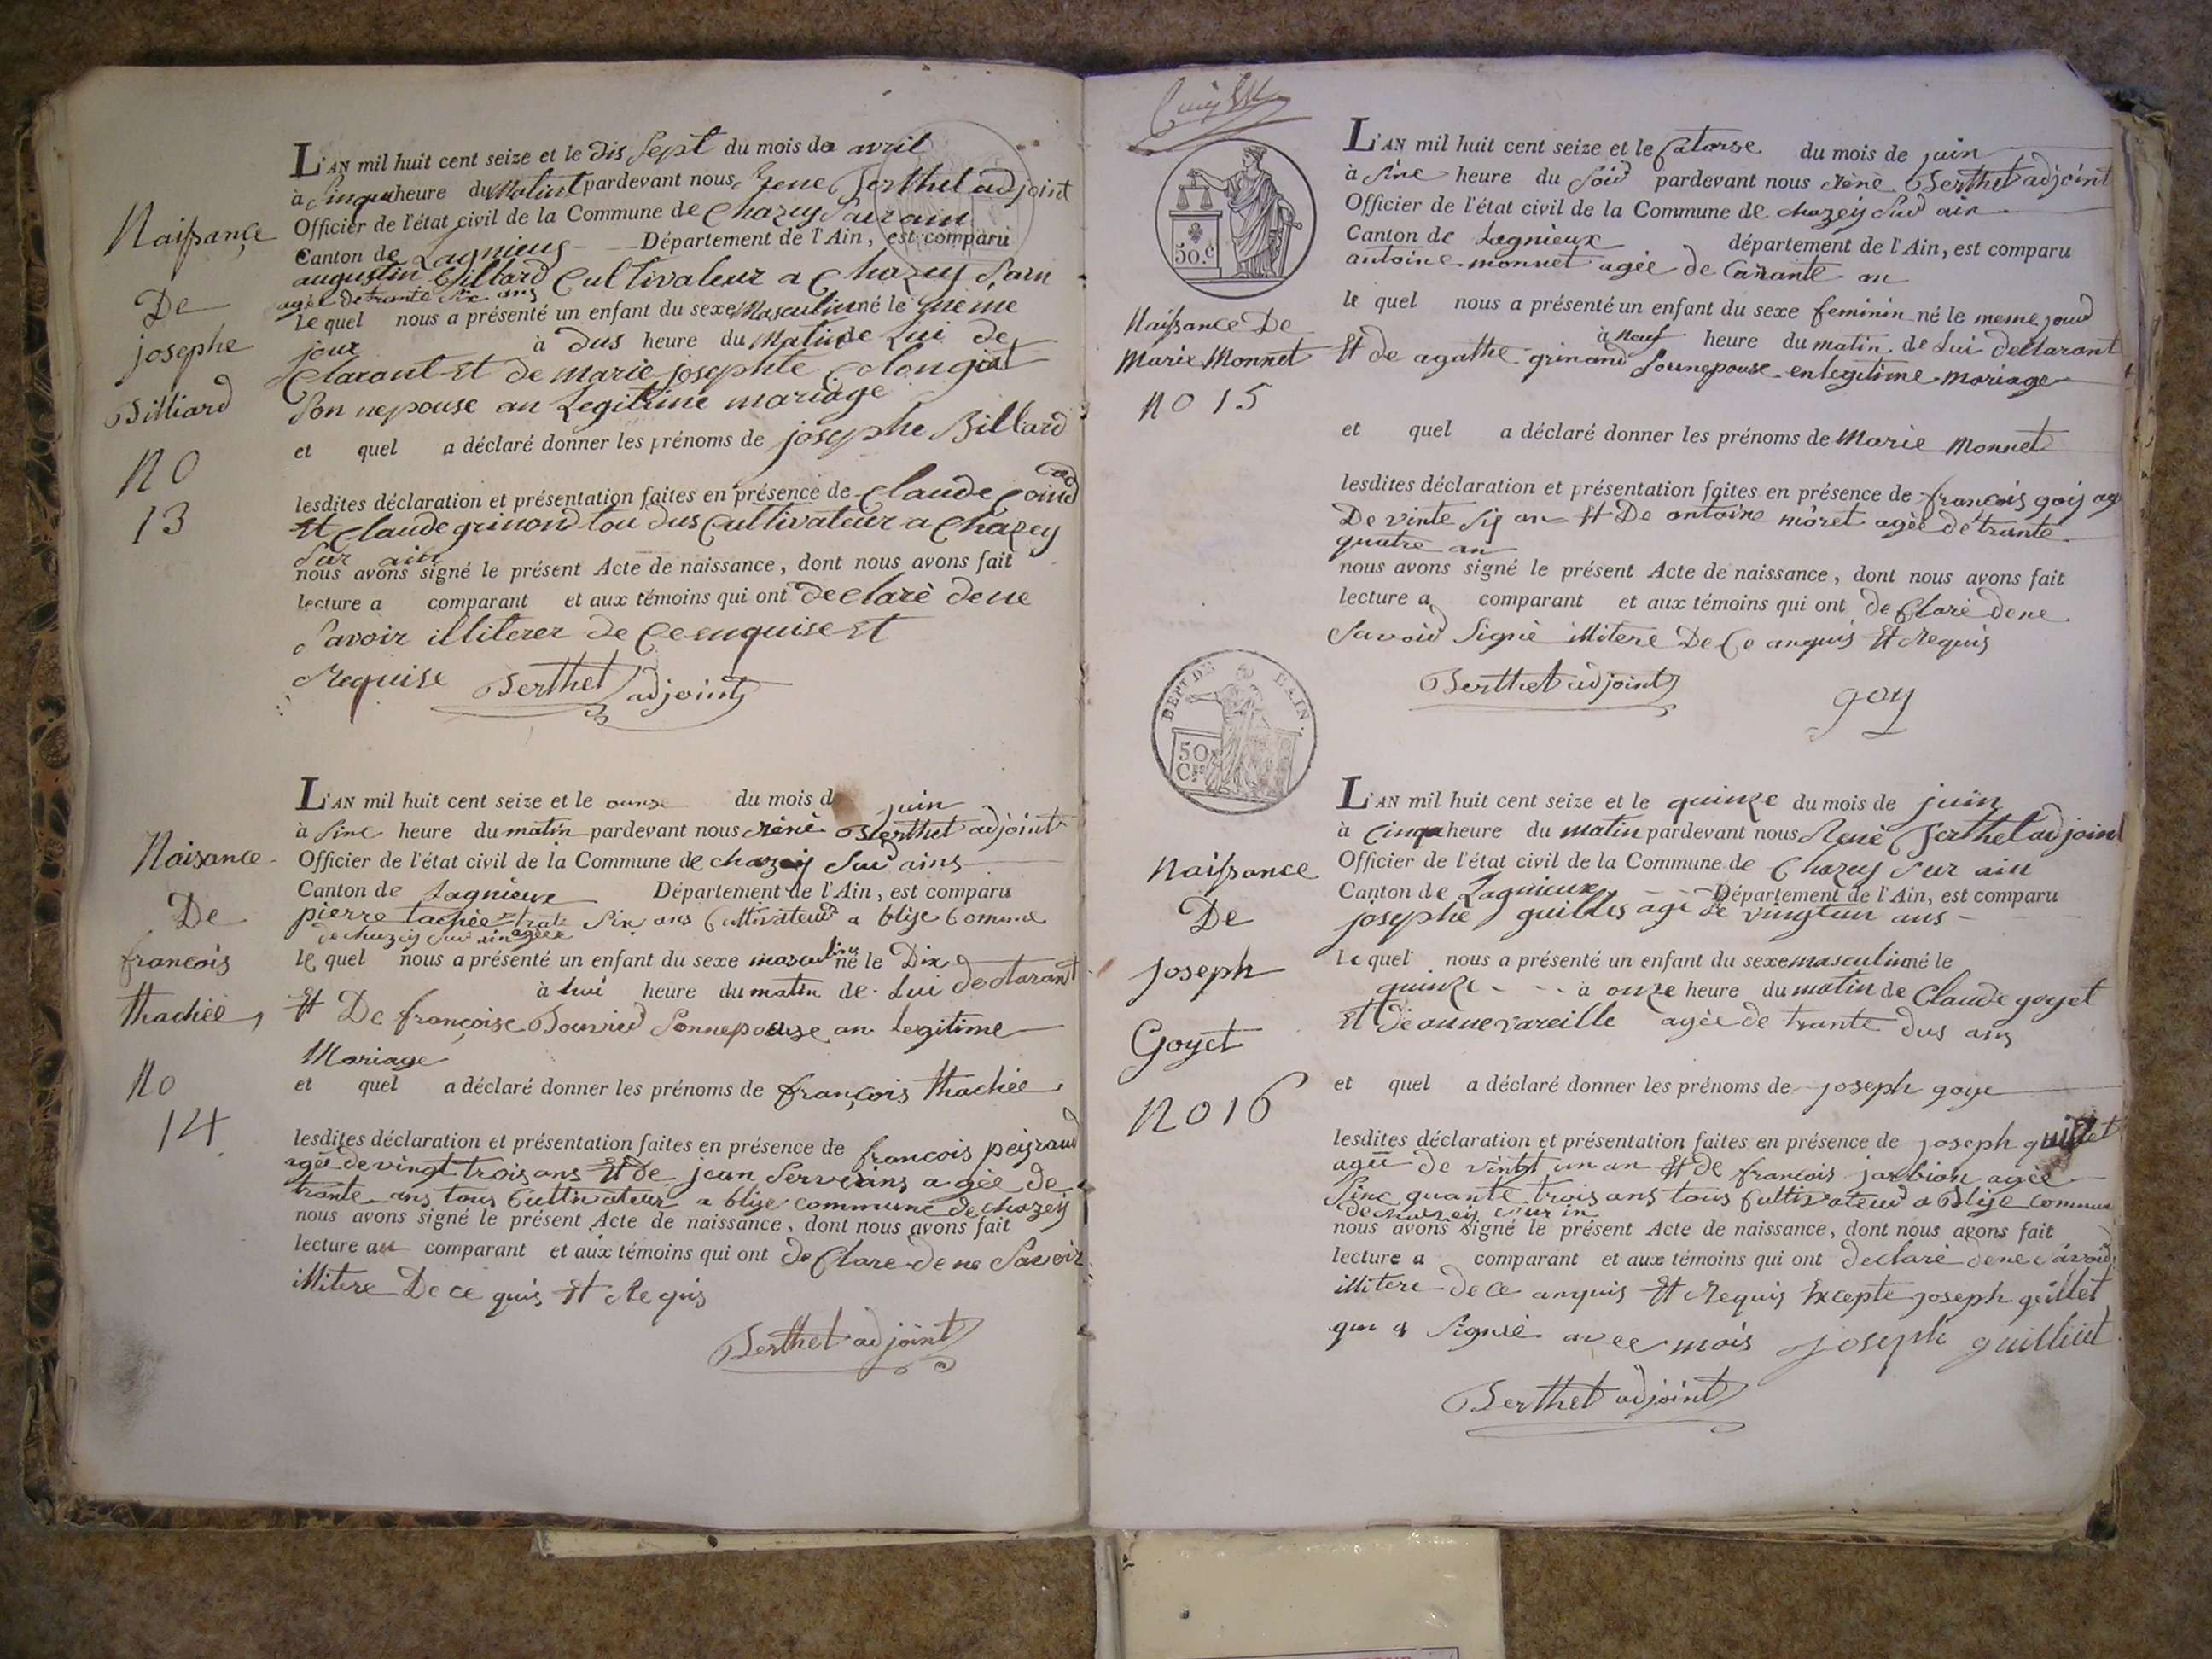 Naissance
De
josephe
Billiard
NO
13
L'AN mil huit cent seize et le dis Sept du mois de avril
à Sinque heure du Matint pardevant nous Rene Berthet adjoint
Officier de l'état civil de la Commune de Chazey Sur ain
Canton de Lagnieus Département de l'Ain, est comparu
augustin Billard Cultivateur a Chazey Sur
agee de trante Six ans
Le quel nous a présenté un enfant du sexe Masculin né le meme
jour à dus heure du Matin de Lui de
Claront Et de marie josephte Colongat
Son nepouse an Legitime mariage
et quel a déclaré donner les prénoms de josephe Billard
lesdites déclaration et présentation faites en présence de Claude
Et Claude grinond tou dus Cultivateur a Chazey
Sur ain
nous avons signé le présent Acte de naissance, dont nous avons fait
lecture a comparant et aux témoins qui ont declarè de ne
Savoir illiterer de Ce enquise Et
Requise Berthet adjoint
Naisance
De
francois
thachée
No
14
L'AN mil huit cent seize et le ounse du mois d juin
à Sinc heure du matin pardevant nous rènè Berthet adjoint
Officier de l'état civil de la Commune de chazeij Sur ains
Canton de Lagnieux Département de l'Ain, est comparu
pierre tachèe trate Six ans Cultivateur a blije Comune
de chazeij Sur ain agèe
le quel nous a présenté un enfant du sexe masculin né le Dix
à hui heure du matin de Lui declarant
Et De françoise Bouvier Sonnepouse an Legitime
Mariage
et quel a déclaré donner les prénoms de françois thachée
lesdites déclaration et présentation faites en présence de francois peijraud
agée de vingt trois ans Et de jean Serverins agèe de
trante ans tous Cultivateur a blije commune de chazeij
nous avons signé le présent Acte de naissance, dont nous avons fait
lecture au comparant et aux témoins qui ont de Clare de ne Savoir
illitere De ce quis Et Requis
Berthet adjoint
50.c
Naissance De
Marie Monnet
NO 15
L'AN mil huit cent seize et le Catorse du mois de juin
à Sinc heure du Soir pardevant nous rènè Berthet adjoint
Officier de l'état civil de la Commune de chazeij Sur ain
Canton de Lagnieux département de l'Ain, est comparu
antoine monnet agèe de Carante an
le quel nous a présenté un enfant du sexe feminin né le meme jour
à neuf heure du matin de Lui declarant
Et de agathe grinand Sonnepouse en legitime mariage
et quel a déclaré donner les prénoms de Marie Monnet
lesdites déclaration et présentation faites en présence de françois goij ag
De vinte Si an Et De antoine mòret agèe de trante
quatre an
nous avons signé le présent Acte de naissance, dont nous avons fait
lecture a comparant et aux témoins qui ont de Clarè de ne
Savoir Signè illitere De Ce anquis Et Requis
Berthet adjoint goy
DEPT DE L'AIN
50
Naissance
De
Joseph
Goyet
NO 16
L'AN mil huit cent seize et le quinze du mois de juin
à Cinqu heure du matin pardevant nous Renè Berthet adjoint
Officier de l'état civil de la Commune de Chazey Sur ain
Canton de Lagnieux Département de l'Ain, est comparu
josephe guilles agè de vingtun ans
Le quel nous a présenté un enfant du sexe masculin né le
quinze à onze heure du matin de Claude goyet
Et De anne vareille agèe de trante dus ans
et quel a déclaré donner les prénoms de joseph goye
lesdites déclaration et présentation faites en présence de joseph guillet
agee de vingt un an Et de francois jarbion agèe
Sinc quante trois ans tous Cultivateur a Blije commun
de chazeij Sur in
nous avons signé le présent Acte de naissance, dont nous avons fait
lecture a comparant et aux témoins qui ont declarè de ne Savoir
illitere de ce anquis Et Requis Excepte joseph guillet
qui a Signèe avec mois joseph guilliet
Berthet adjoint